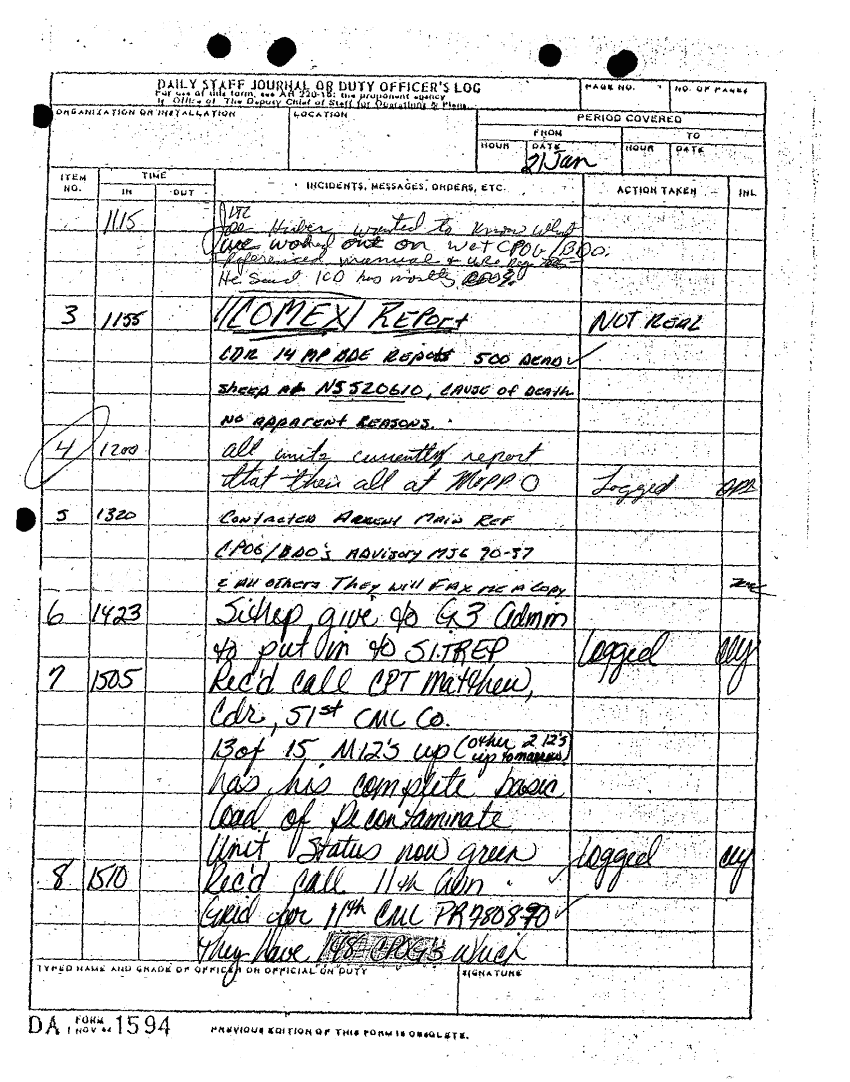 DAILY STAFF JOURNAL OR DUTY OFFICER'S LOG
For use of this form, see AR 220-15; the proponent agency
is Office of The Deputy Chief of Staff for Operations & Plans.
PAGE NO.
NO. OF PAGES
ORGANIZATION OR INSTALLATION
LOCATION
PERIOD COVERED
FROM
TO
HOUR
DATE
HOUR
DATE
21 Jan
ITEM NO.
TIME
IN
OUT
INCIDENTS, MESSAGES, ORDERS, ETC.
ACTION TAKEN
INL
1115
LTC
wanted to know what
we worked out on wet CPOG/BDO.
Referenced manual +
He said ICO has mostly
3 1155 //COMEX// REPORT NOT REAL
CDR 14 MP BDE Reports 500 DEAD
sheep at NS520610, CAUSE OF DEATH
NO APPARENT REASONS.
4 1200 all units currently report
that their all at MOPP O Logged
5 1320 Contacted ARCENT MAIN REF
CPOG/BDO's ADVISORY MSG 90-37
& All others They will FAX me A Copy
6 1423 Sitrep give to G3 Admin
to put in to SITREP Logged
7 1505 Rec'd call CPT Matthew,
Cdr, 51st CML Co.
13 of 15 M12's up (other 2 12's
up tomorrow)
has his complete basic
load of Decontaminate
Unit Status now green Logged
8 1510 Rec'd call 11th Cem
Grid for 11th CML PR780890
They Have 148 CPOG's which
TYPED NAME AND GRADE OF OFFICER OR OFFICIAL ON DUTY
SIGNATURE
DA FORM 1 NOV 1594
PREVIOUS EDITION OF THIS FORM IS OBSOLETE.